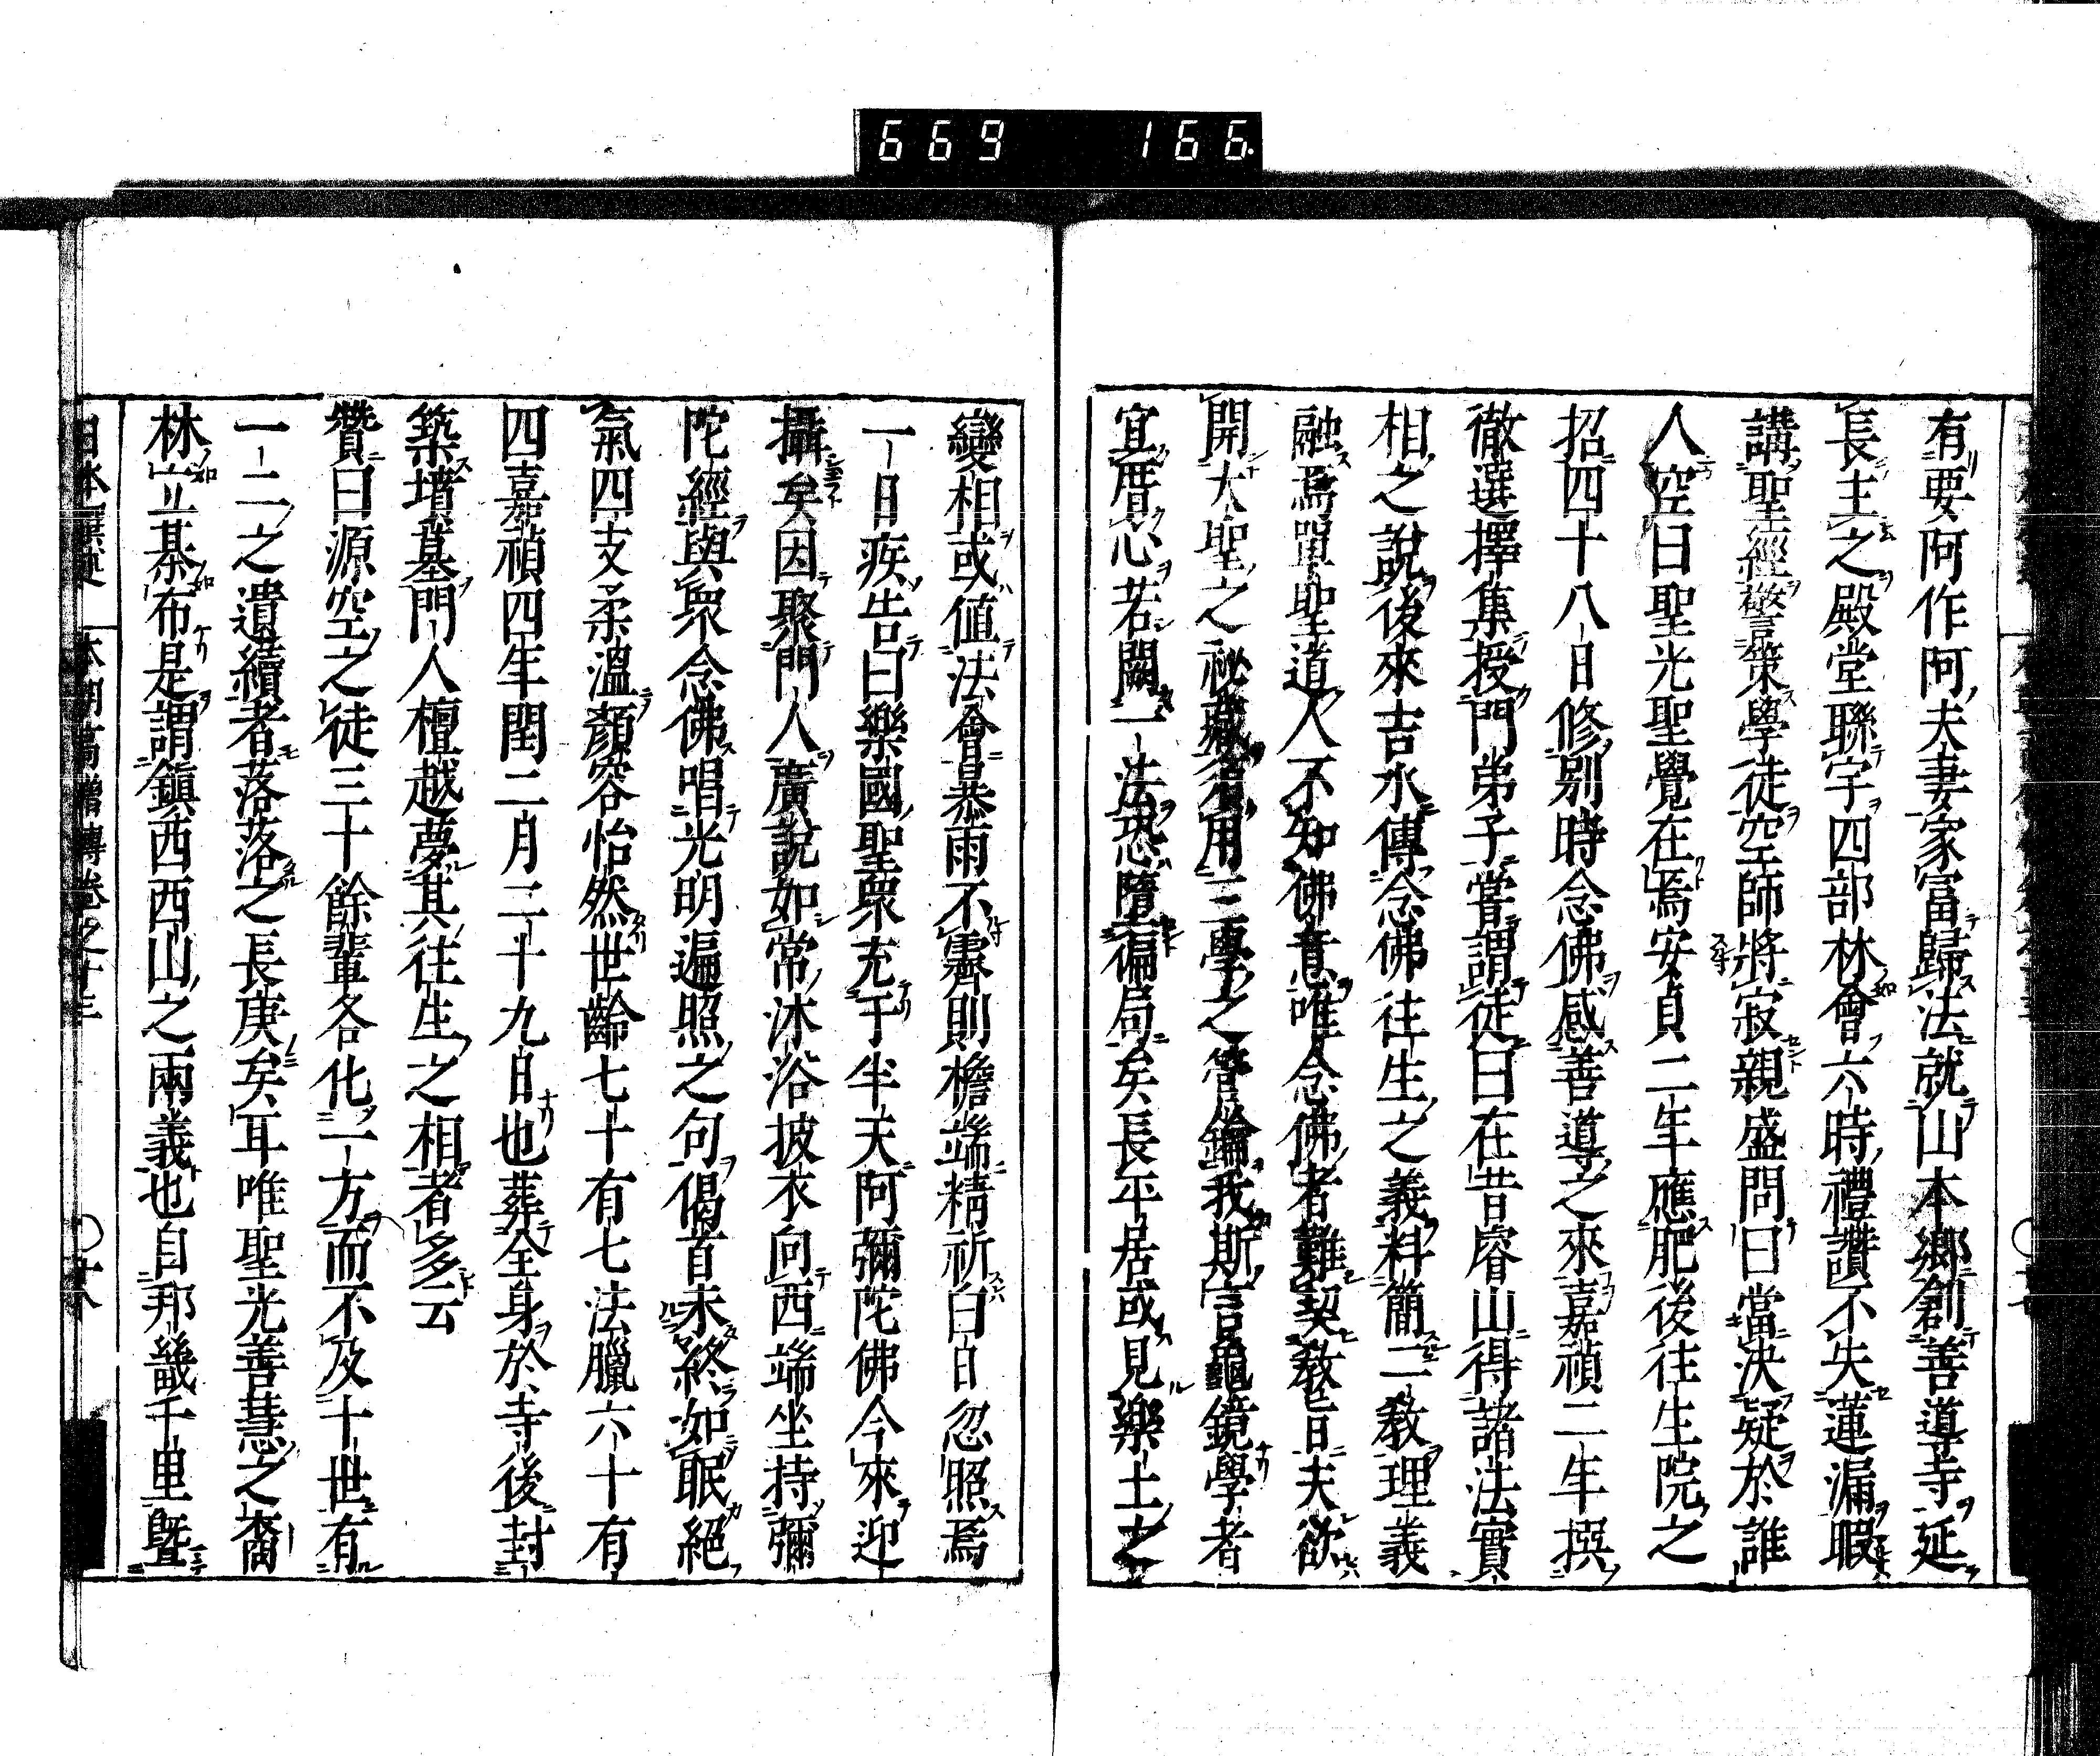 669 166.
有要阿作阿夫妻家富歸法就山本鄉創善導寺延
長主之殿堂聯宇四部林會六時禮讚不失蓮漏暇
講聖經警策學徒空師將寂親盛問曰當決疑於誰
人空曰聖光聖覺在焉安貞二年應肥後往生院之
招四十八日修別時念佛感善導之來嘉禎二年撰
徹選擇集授門弟子嘗謂徒曰在昔睿山得諸法實
相之說後來吉水傳念佛往生之義料簡二教理義
融焉單聖道人不知佛意唯念佛者難契教旨夫欲
開大聖之祕藏須用三學之管鑰我斯言龜鏡學者
宜厝心若闕一法恐墮偏局矣長平居或見樂土之
變相或值法會暴雨不霽則檐端精祈白日忽照焉
一日疾告曰樂國聖眾充于半天阿彌陀佛今來迎
攝矣因聚門人廣說如常沐浴披衣向西端坐持彌
陀經與眾念佛唱光明遍照之句偈首未終如眠絕
氣四支柔溫顏容怡然世齡七十有七法臘六十有
四嘉禎四年閏二月二十九日也葬全身於寺後封
築墳墓門人檀越夢其往生之相者多云
贊曰源空之徒三十餘輩各化一方而不及十世有
一二之遺續者落落之長庚矣耳唯聖光善慧之裔
林立棊布是謂鎮西西山之兩義也自邦畿千里曁
本朝高僧傳卷之十三